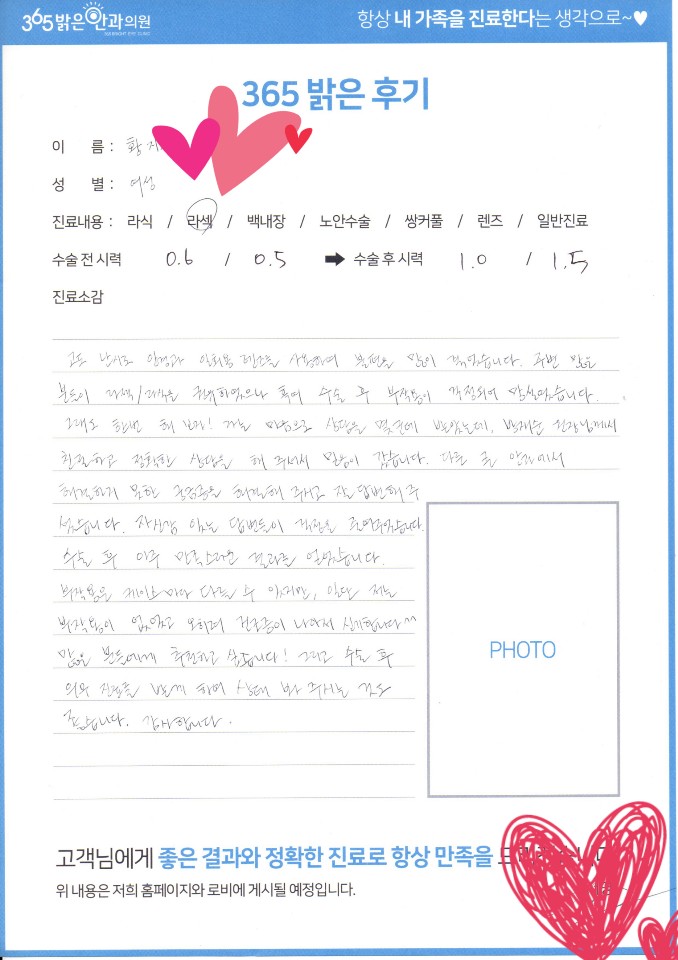 365 밝은안과의원
항상 내 가족을 진료한다는 생각으로~♥
365 밝은 후기
이 름 : 황
성 별 : 여성
진료내용 : 라식 / 라섹 / 백내장 / 노안수술 / 쌍커풀 / 렌즈 / 일반진료
수술 전 시력 0.6 / 0.5 ➡ 수술 후 시력 1.0 / 1.5
진료소감
고도 난시로 안경과 일회용 렌즈를 사용하며 불편을 많이 겪었습니다. 주변 많은
분들이 라섹/라식을 권해하였으나 혹여 수술 후 부작용이 걱정되어 망설였습니다.
그래도 한번 해 보자! 하는 마음으로 상담을 몇군데 받았는데, 박재순 원장님께서
친절하고 정확한 상담을 해 주셔서 믿음이 갔습니다. 다른 큰 안과에서
해결하지 못한 궁금증을 해결해 주시고 잘 답변해 주
셨습니다. 자신감 있는 답변들이 걱정을 덜어주었습니다.
수술 후 아주 만족스러운 결과를 얻었습니다.
부작용은 케이스마다 다를 수 있지만, 일단 저는
부작용이 없었고 오히려 건조증이 나아져 신기합니다^^
많은 분들에게 추천하고 싶습니다! 그리고 수술 후
의무 진료를 받게 하여 상태 봐 주시는 것도
좋습니다. 감사합니다.
PHOTO
고객님에게 좋은 결과와 정확한 진료로 항상 만족을
위 내용은 저희 홈페이지와 로비에 게시될 예정입니다.